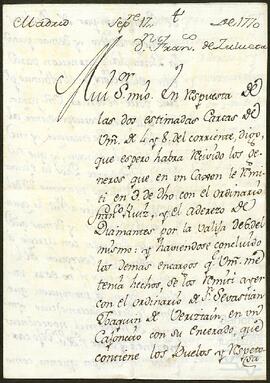 Madrid Sepre. 12. de 1770
Dn. Franco. de Zuluaga
Mui Sr. mio. En respuesta de
las dos estimadas Cartas de
Vm. de 4. y 8. del corriente, digo,
que espero habra recivido los ge-
neros que en un Caxon le remi-
ti en 3. de dho con el ordinario
Franco. Ruiz, y el aderezo de
Diamantes por la valija de 6. del
mismo: y haviendose concluido
los demas encargos q Vm. me
tenia hechos, se los remiti ayer
con el ordinario de Sn. Sevastian
Joaquin de en un
Cajoncito con su Encerado, que
contiene los Buelos, y Respeto